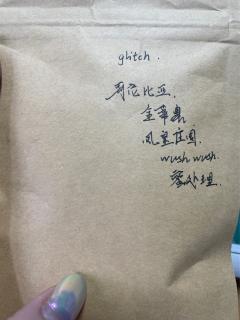 glitch.
哥伦比亚.
金蒂奥
凤凰庄园.
wush wush.
蜜处理.